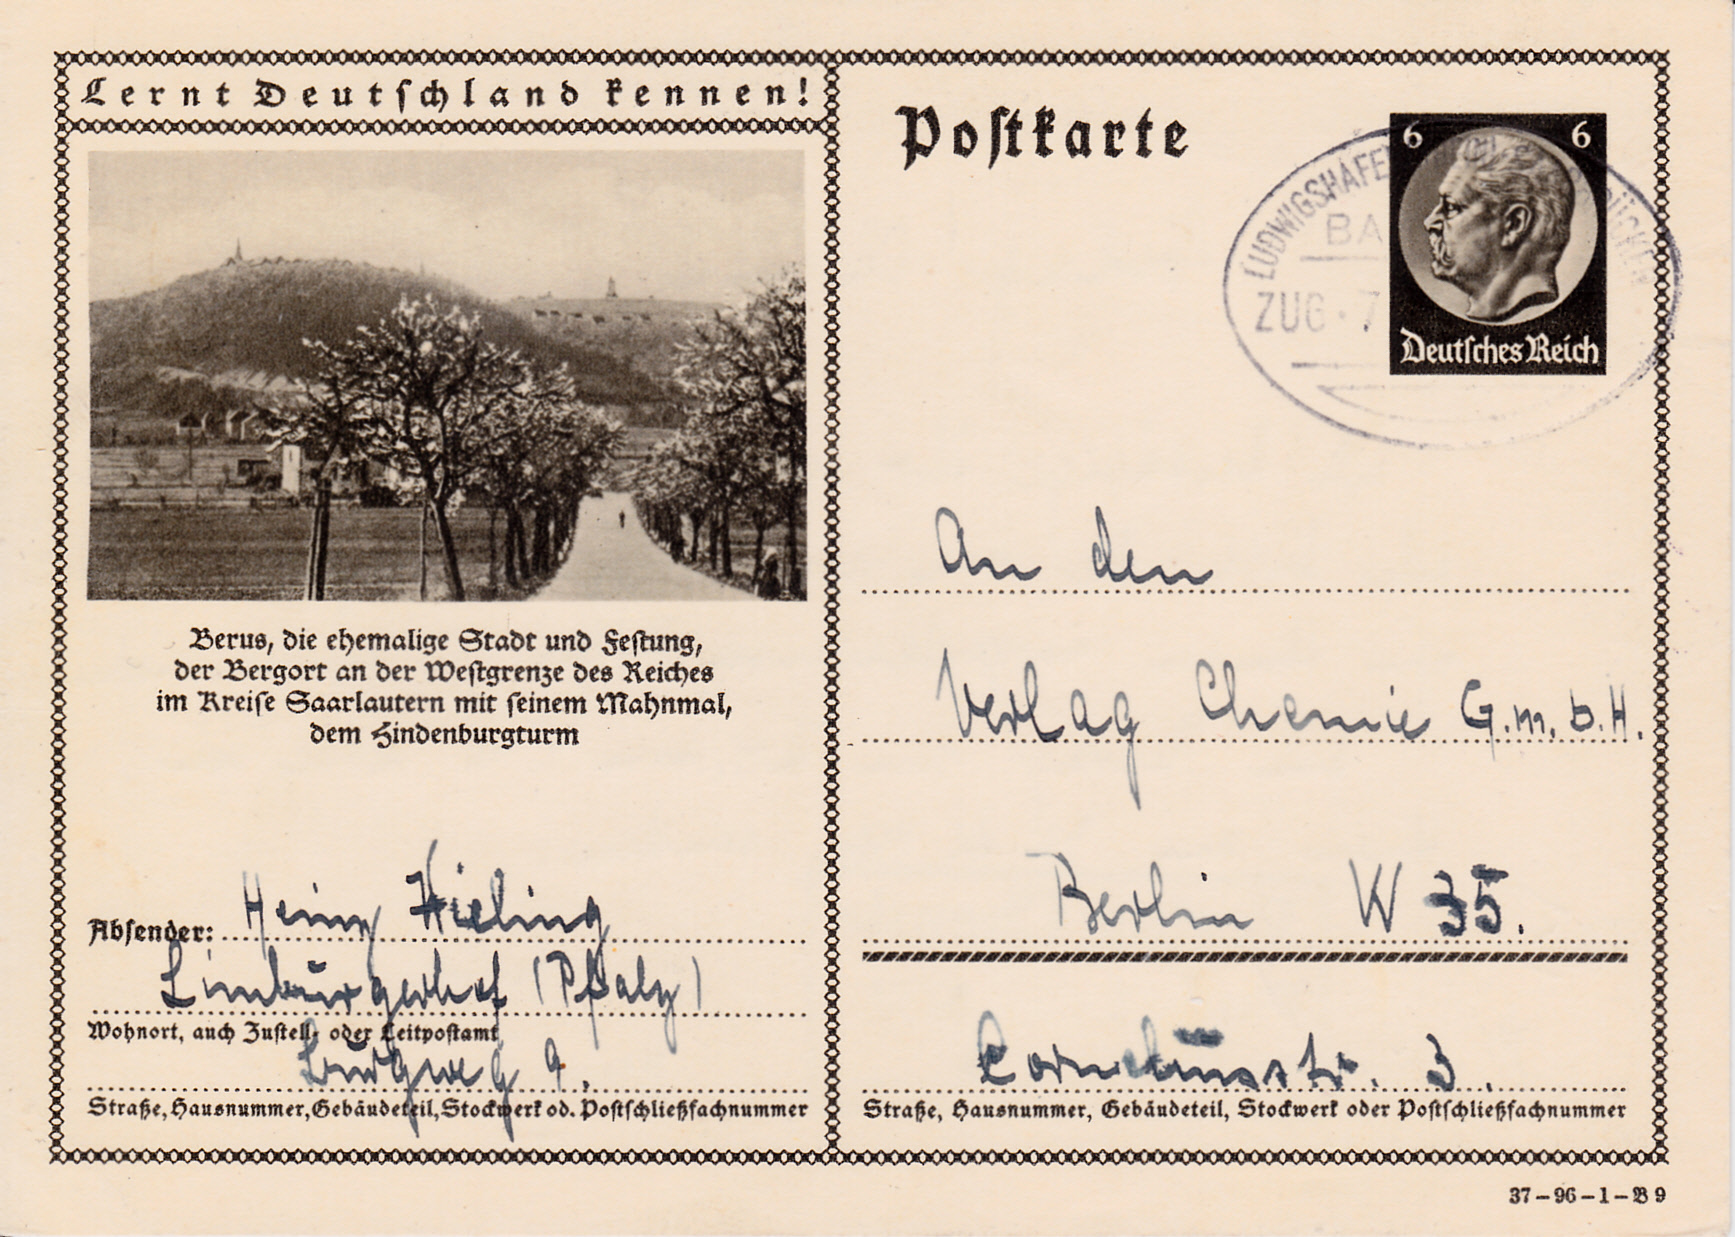 Lernt Deutschland kennen!
Berus, die ehemalige Stadt und Festung,
der Bergort an der Westgrenze des Reiches
im Kreise Saarlautern mit seinem Mahnmal,
dem Hindenburgturm
Absender: Heinz Hieling
Limburgerhof (Pfalz)
Wohnort, auch Zustell- oder Leitpostamt
Burgweg 9.
Straße, Hausnummer, Gebäudeteil, Stockwerk od. Postschließfachnummer
Postkarte
6 6
Deutsches Reich
LUDWIGSHAFEN
ZUG 7
An den
Verlag Chemie G.m.b.H.
Berlin W 35.
Corneliusstr. 3.
Straße, Hausnummer, Gebäudeteil, Stockwerk oder Postschließfachnummer
37–96–1–B 9